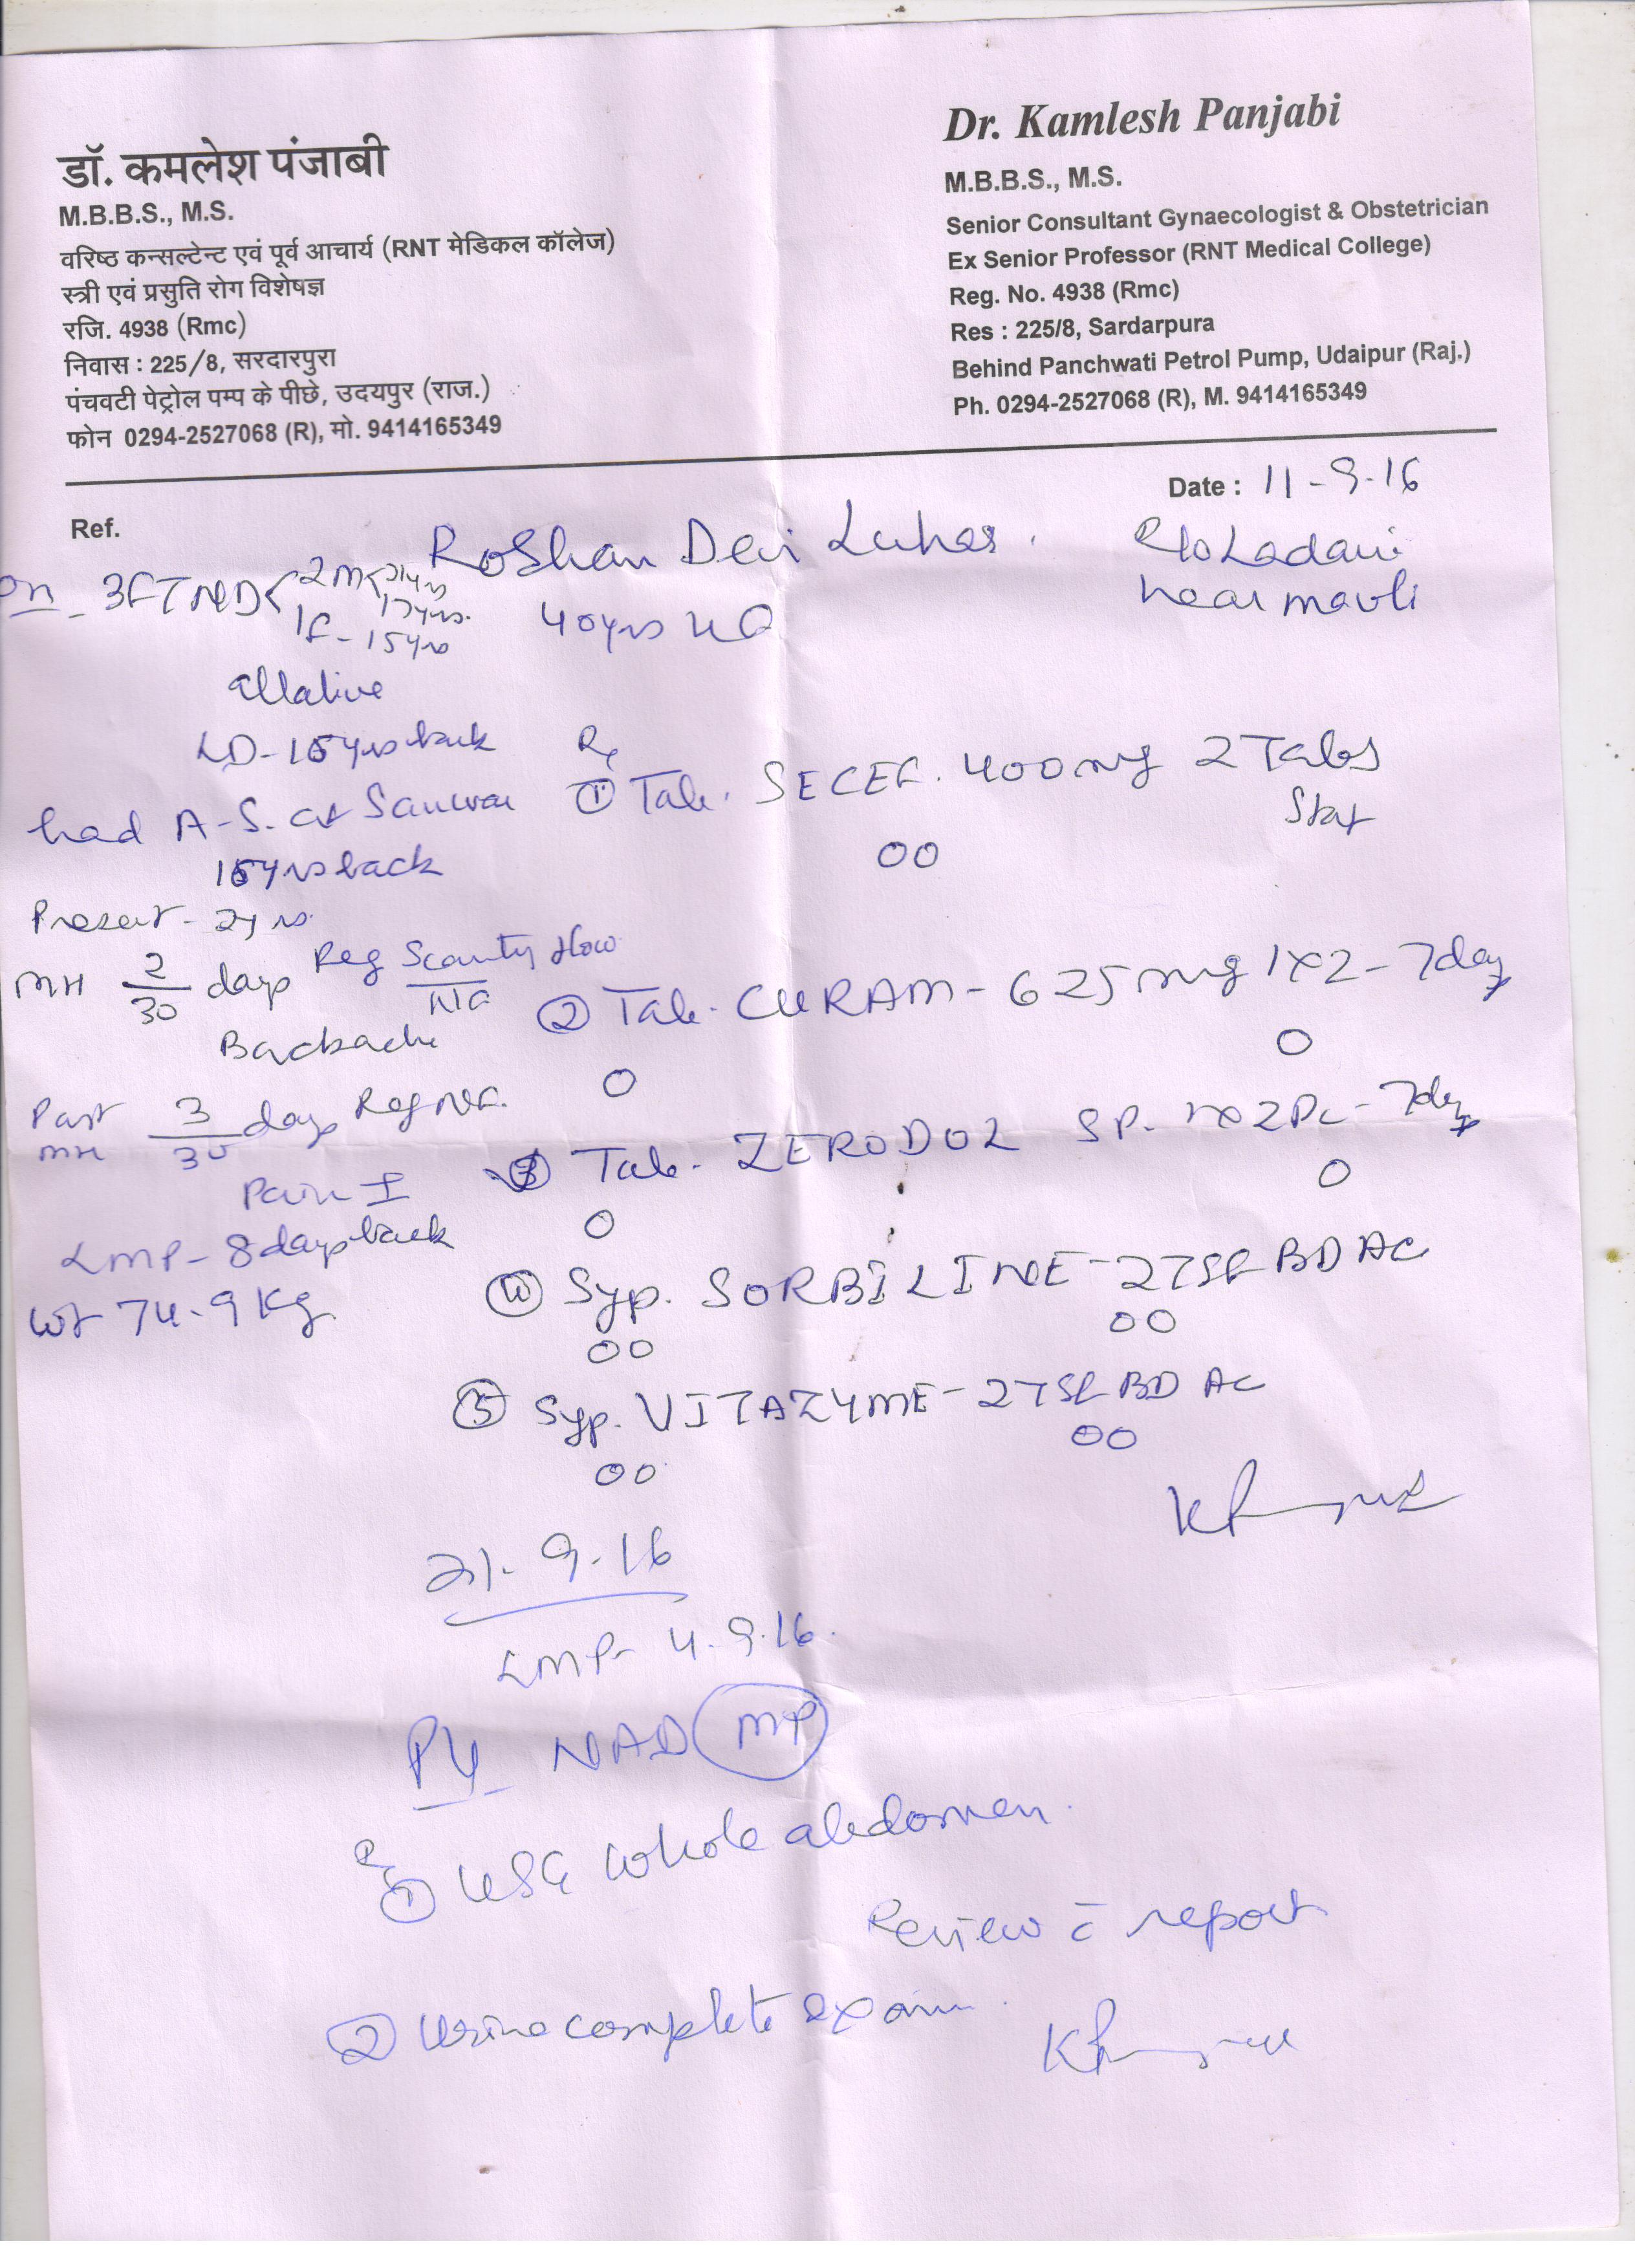 डॉ. कमलेश पंजाबी
M.B.B.S., M.S.
वरिष्ठ कन्सल्टेन्ट एवं पूर्व आचार्य (RNT मेडिकल कॉलेज)
स्त्री एवं प्रसुति रोग विशेषज्ञ
रजि. 4938 (Rmc)
निवास : 225/8, सरदारपुरा
पंचवटी पेट्रोल पम्प के पीछे, उदयपुर (राज.)
फोन 0294-2527068 (R), मो. 9414165349
Dr. Kamlesh Panjabi
M.B.B.S., M.S.
Senior Consultant Gynaecologist & Obstetrician
Ex Senior Professor (RNT Medical College)
Reg. No. 4938 (Rmc)
Res : 225/8, Sardarpura
Behind Panchwati Petrol Pump, Udaipur (Raj.)
Ph. 0294-2527068 (R), M. 9414165349
Date : 11-9-16
Ref.
Roshan Devi Luhar.
R/o Ladani
near mavli
40yrs
3FTND 2M
17yrs.
1F-15yrs
all alive
LD-15yrs back
had A-S. at
15yrs back
Present-2yrs.
MH 2/30 days Reg Scanty flow
Backache
Past MH 3/30 days Reg NF.
Pain +
LMP-8days back
Wt 74.9Kg
Rx
① Tab. SECEF. 400mg 2 Tabs
Stat
00
② Tab. CURAM-625mg 1x2-7days
0 0
③ Tab. ZERODOL SP. 1x2PC-7days
0 0
④ Syp. SORBILINE-2TSF BD AC
00 00
⑤ Syp. VITAZYME-2TSF BD AC
00 00
21.9.16
LMP- 4.9.16.
NAD MP
Rx
① USG Whole abdomen.
Review c̄ report
② Urine complete exam.